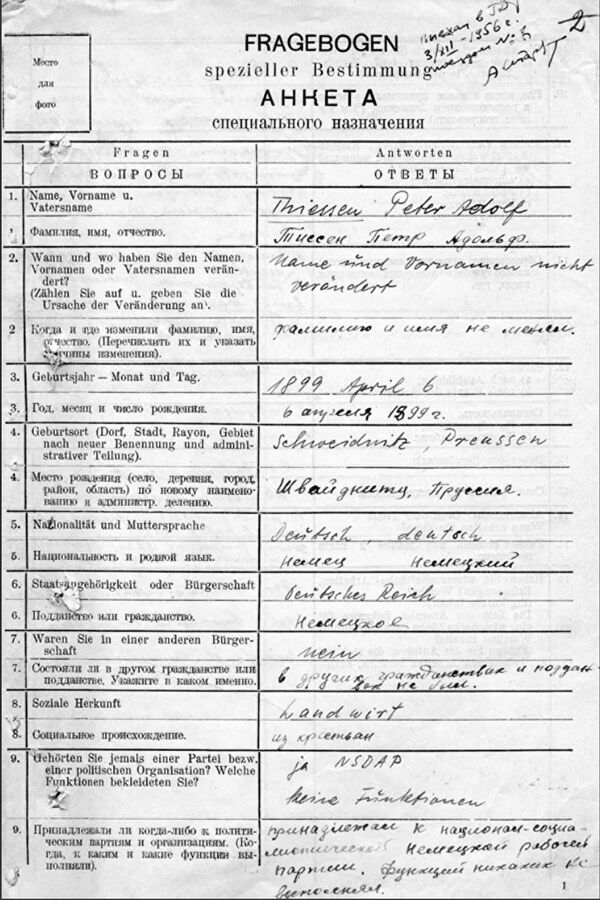 выехал в ГДР
3/XII - 1956 г.
поездом №
2
Место
для
фото
FRAGEBOGEN
spezieller Bestimmung
АНКЕТА
специального назначения
Fragen Antworten
ВОПРОСЫ ОТВЕТЫ
1. Name, Vorname u.
Vatersname
Thiessen Peter Adolf
1. Фамилия, имя, отчество.
Тиссен Петр Адольф.
2. Wann und wo haben Sie den Namen,
Vornamen oder Vatersnamen verän-
dert?
(Zählen Sie auf u. geben Sie die
Ursache der Veränderung an).
Name und Vornamen nicht
verändert
2 Когда и где изменили фамилию, имя,
отчество. (Перечислить их и указать
причины изменения).
фамилию и имя не менял.
3. Geburtsjahr — Monat und Tag.
1899 April 6
3. Год, месяц и число рождения.
6 апреля 1899 г.
4. Geburtsort (Dorf, Stadt, Rayon, Gebiet
nach neuer Benennung und admini-
strativer Teilung).
Schweidnitz, Preussen
4. Место рождения (село, деревня, город,
район, область) по новому наимено-
ванию и администр. делению.
Швайднитц, Пруссия.
5. Nationalität und Muttersprache
Deutsch, deutsch
5. Национальность и родной язык.
немец немецкий
6. Staatsangehörigkeit oder Bürgerschaft
Deutsches Reich
6. Подданство или гражданство.
немецкое
7. Waren Sie in einer anderen Bürger-
schaft
nein
7. Состояли ли в другом гражданстве или
подданстве. Укажите в каком именно.
в других гражданствах и поддан-
вах не был.
8. Soziale Herkunft
Landwirt
8. Социальное происхождение.
из крестьян
9. Gehörten Sie jemals einer Partei bezw.
einer politischen Organisation? Welche
Funktionen bekleideten Sie?
ja NSDAP
keine Funktionen
9. Принадлежали ли когда-либо к полити-
ческим партиям и организациям. (Ко-
гда, к каким и какие функции вы-
полняли).
принадлежал к национал-социа-
листической немецкой рабочей
партии. Функций никаких не
выполнял.
1